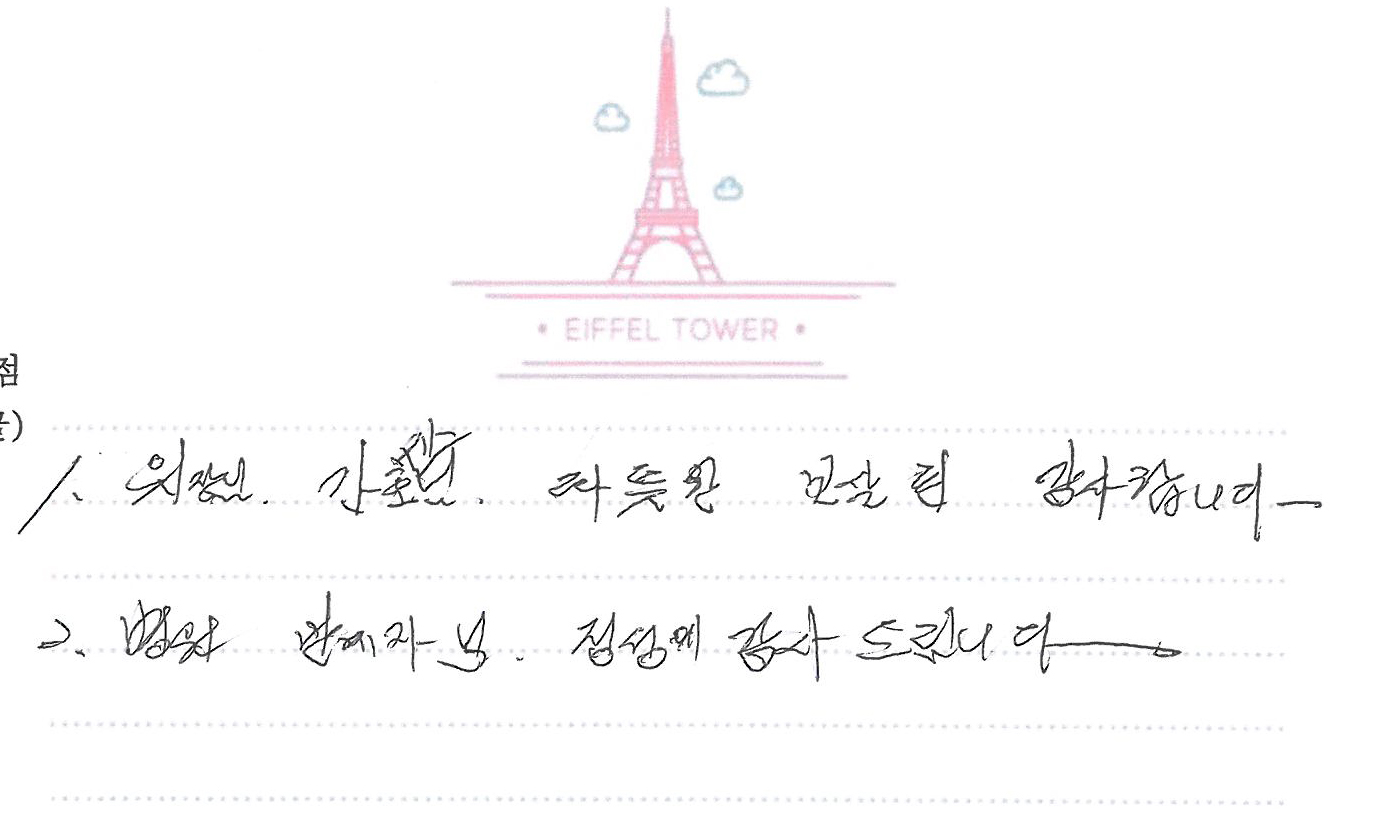 EIFFEL TOWER
점
1. 원장님. 간호사님. 따뜻한 보살핌 감사합니다
2. 병원 관계자님. 정성에 감사드립니다